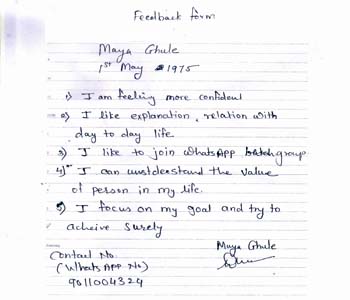 Feedback form
Maya Ghule
1st May 1975
1) I am feeling more confident
2) I like explanation, relation with
day to day life
3) I like to join WhatsApp group
4) I can unstderstand the value
of person in my life.
5) I focus on my goal and try to
acheive surely
Maya Ghule
Contact No.
(WhatsApp No)
9011004324